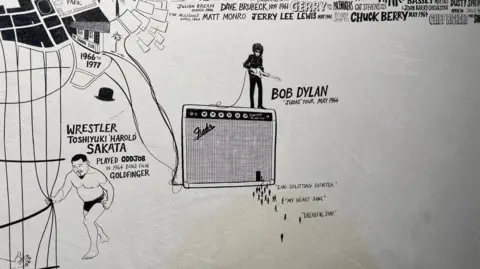 PARK
JULIAN BREAM
DAVE BRUBECK NOV 1964
GERRY
CAT STEVENS
DUSTY SPRI
MATT MONRO
JERRY LEE LEWIS
CHUCK BERRY MAY 1964
1966 TO
1977
BOB DYLAN
'JUDAS' TOUR, MAY 1966
Fender
WRESTLER
TOSHIYUKI 'HAROLD'
SAKATA
PLAYED ODDJOB
IN 1964 BOND FILM
GOLDFINGER
"EAR-SPLITTING DISASTER"
"MY HEART SANK"
"DREADFUL DIN"